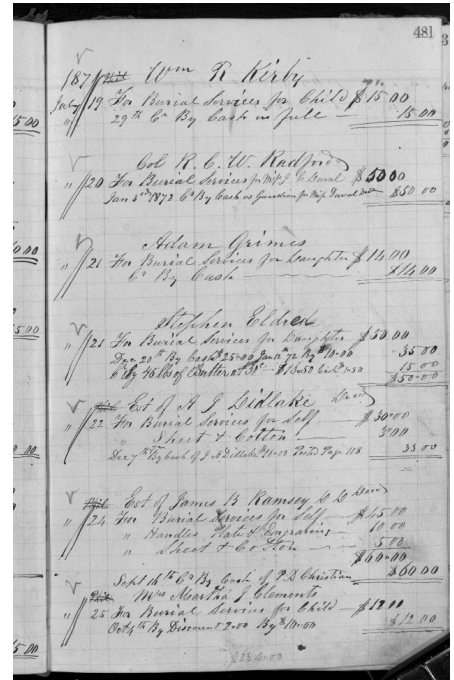 481
1871 Wm R. Kirby
July 19 For Burial Services for Child $15.00
29th Cr By Cash in full — 15.00
Col R. C. W. Radford
" 20 For Burial Services for Miss J C Duval $50.00
Jan 5th 1872 Cr By Cash as Guardian for Miss Duval Decd $50.00
Adam Grimes
" 21 For Burial Services for Daughter $14.00
Cr By Cash $14.00
Stephen Eldred
" 21 For Burial Services for Daughter $50.00
Dec 20th By Cash $25.00 Jan 12th 72 By $10.00 35.00
Cr By 45 lbs of Butter at 30c — $13.50 Cash $1.50 15.00
$50.00
Est of A J Didlake Decd
" 22 For Burial Services for Self $30.00
" Sheet & Cotton 3.00
Dec 7th By Cash of J A Didlake $10.00 Postd Page 118 33.00
Est of James B Ramsey D D Decd
" 24 For Burial Services for Self — $45.00
" Handles Plate & Engraving — 10.00
" Sheet & Cotton — 5.00
$60.00
Sept 16th Cr By Cash of P. D Christian $60.00
Mrs Martha J Clements
" 25 For Burial Services for Child — $12.00
Oct 4th By Discount 2.00 By $10.00 $12.00